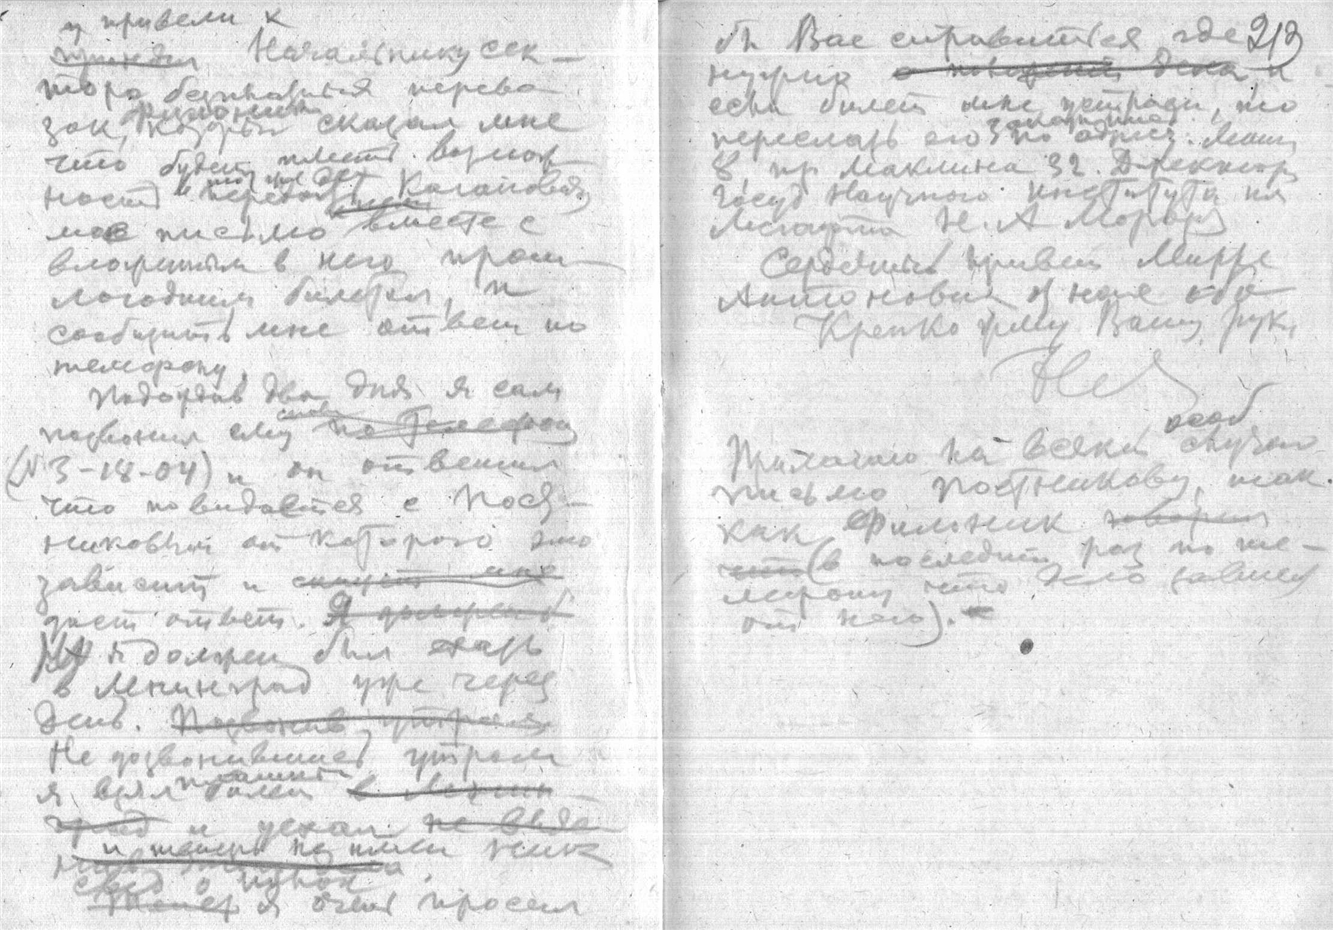 и привели к
Начальнику сек-
тора безплатных перево
зок, Филоник который сказал мне
что будет иметь возмож
ность передать Кагановичу
мое письмо вместе с
вложенным в него прош-
логодним билетом, и
сообщить мне ответ по
телефону.
Подождав два дня я сам
позвонил ему снова по телефону
(N 3-18-04) и он ответил
что повидается с Пост-
никовым от которого это
зависит и
даст ответ. Я должен
Но я должен был ехать
в Ленинград уже через
день. Позвонив утром
Не дозвонившись утром
я взял билет в Ленин
град и уехал не
и теперь не имею ник
я очень просил
бы Вас справиться где 213
нужно и
если билет мне устроят, то
переслать его по адресу. Ленин
пр Маклина 32. Директору
Госуд Научного института им
Лесгафта Н. А Морозову
Сердечный привет Мирре
Антоновне
Крепко жму Вашу руку
особ
Прилагаю на всякий случай
письмо Постникову, так
как Филоник говорил
что (в последний раз по те-
лефону что дело зависит
от него).